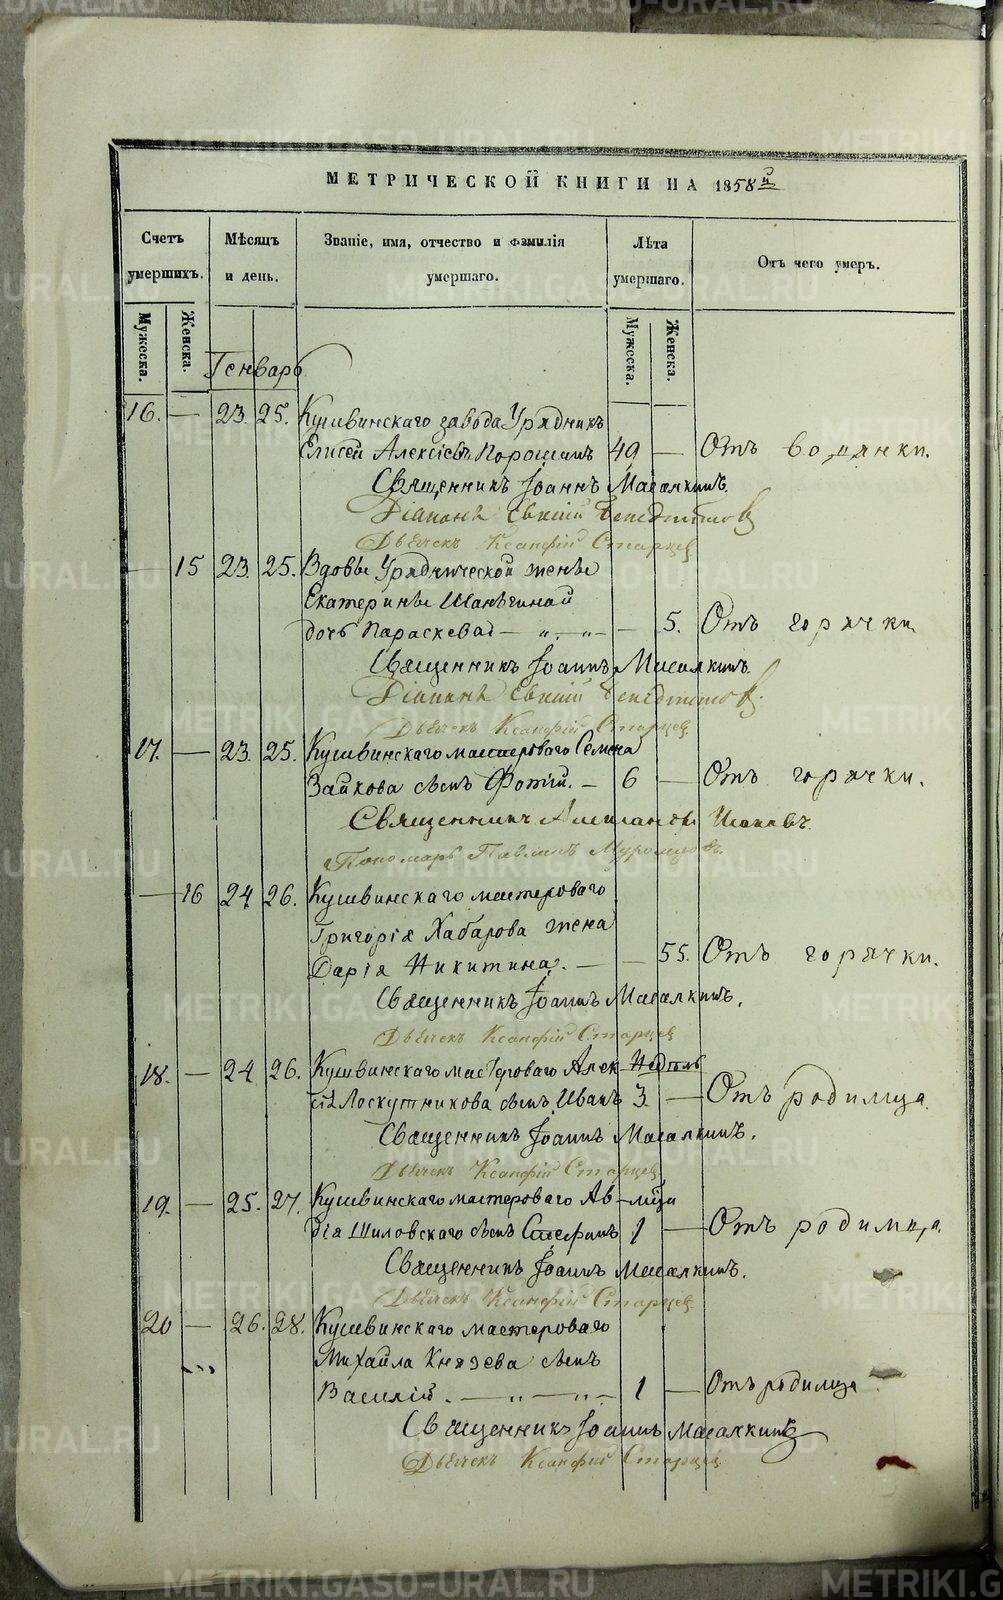 МЕТРИЧЕСКОЙ КНИГИ НА 1858й
Счетъ умершихъ.
Мѣсяцъ и день.
Званіе, имя, отчество и фамилія умершаго.
Лѣта умершаго.
Отъ чего умеръ.
Мужеска. Женска. Мужеска. Женска.
Генварь
16. — 23. 25. Кушвинскаго завода Урядникъ
Елисей Алексіевъ Порошинъ 49 — Отъ водянки.
Священникъ Іоаннъ Масалкинъ.
Діаконъ
Дьячекъ Ксанфій Старцев
— 15 23. 25. Вдовы Уряднической жены
Екатерины Шанѣгиной
дочь Параскева — „ — „ — — 5. Отъ горячки
Священникъ Іоаннъ Масалкинъ.
Діаконъ
Дьячекъ Ксанфій Старцев
17. — 23. 25. Кушвинскаго мастероваго Семена
Зайкова сынъ Фотій. — 6 — Отъ горячки.
Священникъ Александръ
Пономарь Павлинъ Муромцовъ.
— 16 24 26. Кушвинскаго мастероваго
Григорія Хабарова жена
Дарія Никитина. — — 55. Отъ горячки.
Священникъ Іоаннъ Масалкинъ.
Дьячекъ Ксанфій Старцев
18. — 24 26. Кушвинскаго мастероваго Алек- Недѣль
сія Лоскутникова сынъ Иванъ 3 — Отъ родимца.
Священникъ Іоаннъ Масалкинъ.
Дьячекъ Ксанфій Старцев
19. — 25. 27. Кушвинскаго мастероваго Ав- мѣсца
дія Шиловскаго сынъ Стефанъ 1 — Отъ родимца.
Священникъ Іоаннъ Масалкинъ.
Дьячекъ Ксанфій Старцев
20 — 26. 28. Кушвинскаго мастероваго
Михайла Князева сынъ
Василій. — „ — „ — 1 — Отъ родимца
Священникъ Іоаннъ Масалкинъ
Дьячекъ Ксанфій Старцев
METRIKI.GASO-URAL.RU